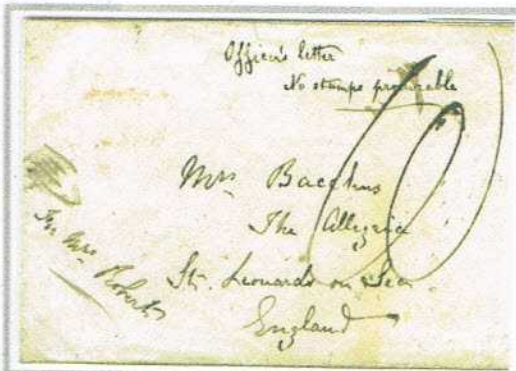 Officer's letter
No stamps procurable
Mrs Bacchus
The Allegria
St. Leonards on Sea
England
For Mrs Roberts